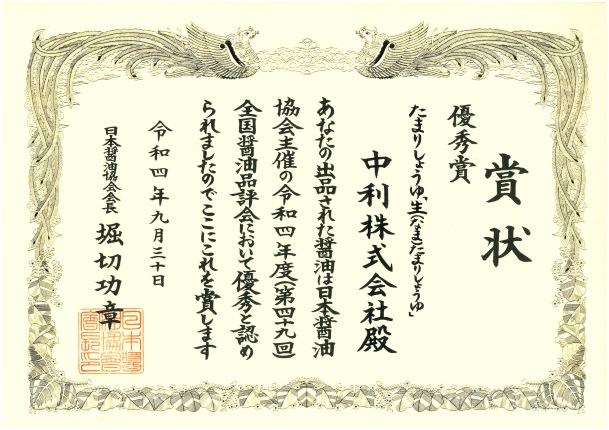 賞状
優秀賞
たまりしょうゆ「生(なま)たまりしょうゆ」
中利株式会社殿
あなたの出品された醤油は日本醤油
協会主催の令和四年度(第四十九回)
全国醤油品評会において優秀と認め
られましたのでここにこれを賞します
令和四年九月三十日
日本醤油協会会長 堀切功章